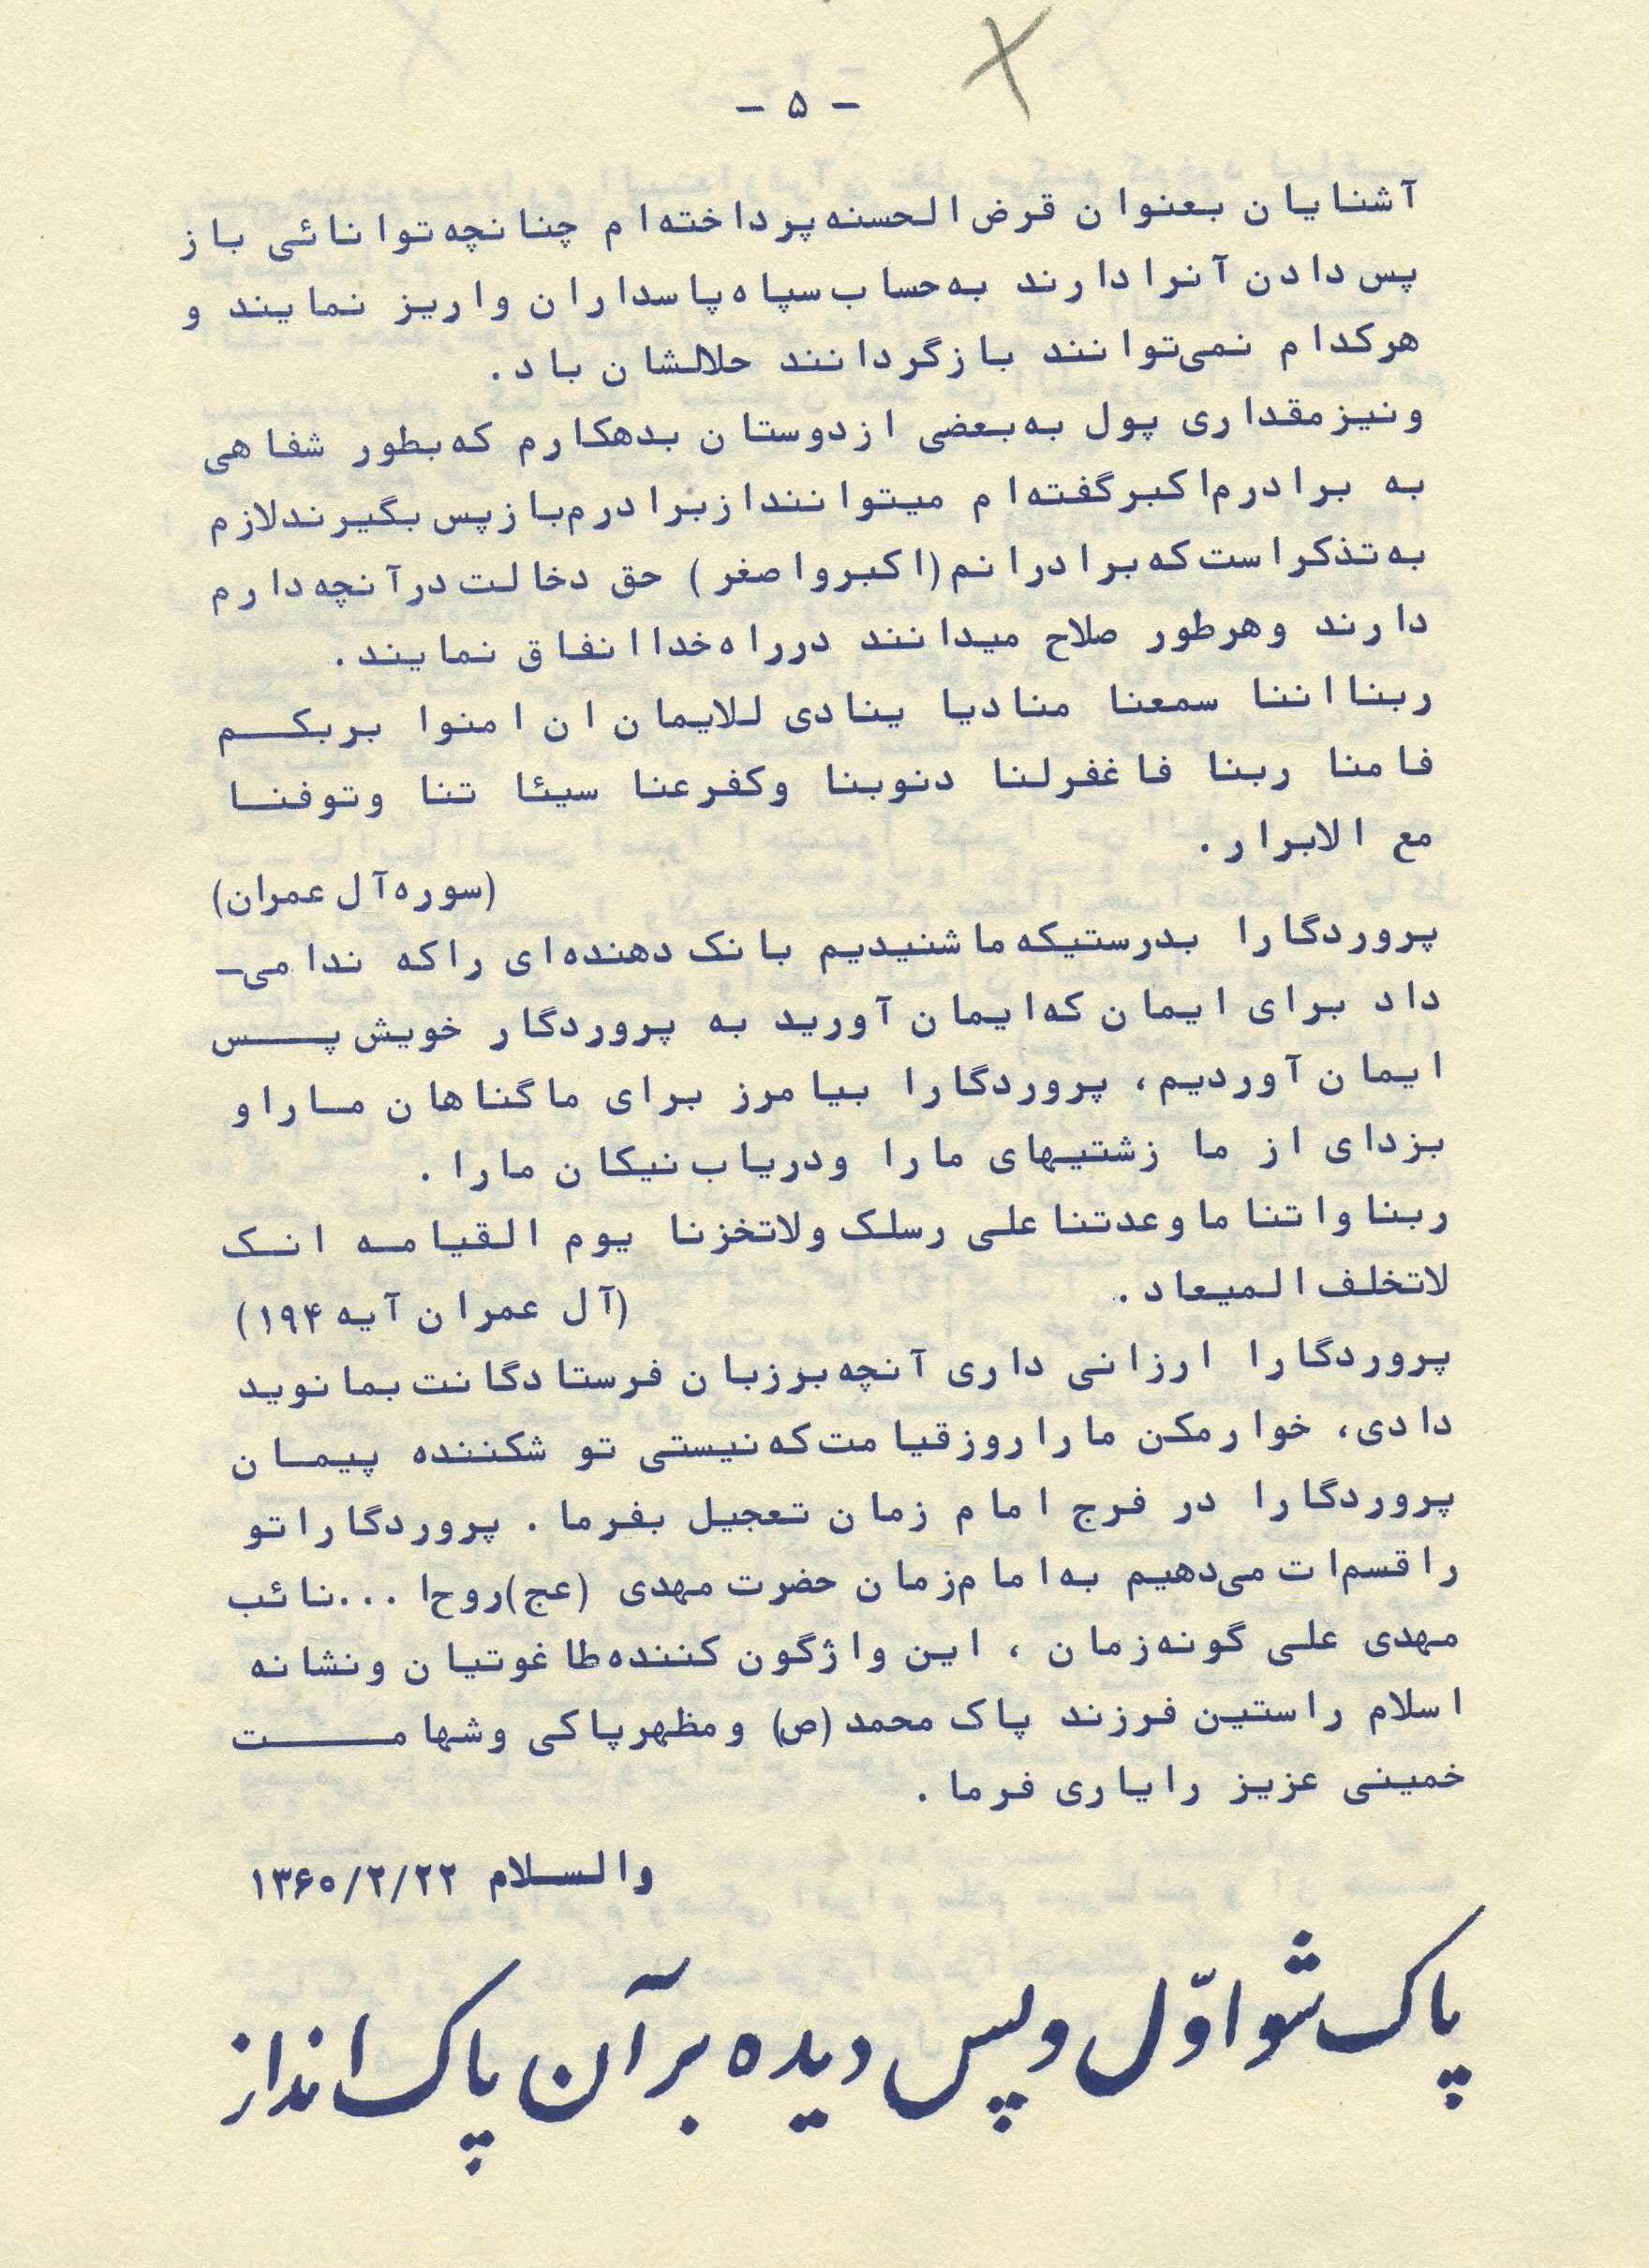 - ۵ -
آشنایان بعنوان قرض الحسنه پرداخته‌ام چنانچه توانائی باز
پس دادن آنرا دارند به حساب سپاه پاسداران واریز نمایند و
هرکدام نمی‌توانند بازگردانند حلالشان باد.
ونیز مقداری پول به بعضی از دوستان بدهکارم که بطور شفاهی
به برادرم اکبر گفته‌ام میتوانند از برادرم باز پس بگیرند لازم
به تذکر است که برادرانم (اکبر و اصغر) حق دخالت در آنچه دارم
دارند و هرطور صلاح میدانند در راه خدا انفاق نمایند.
ربنا اننا سمعنا منادیا ینادی للایمان ان امنوا بربکم
فامنا ربنا فاغفرلنا دنوبنا وکفر عنا سیئاتنا وتوفنا
مع الابرار.
(سوره آل عمران)
پروردگارا بدرستیکه ما شنیدیم بانک دهنده‌ای را که ندا می-
داد برای ایمان که ایمان آورید به پروردگار خویش پس
ایمان آوردیم، پروردگارا بیامرز برای ما گناهان مارا و
بزدای از ما زشتیهای مارا ودریاب نیکان مارا.
ربنا واتنا ما وعدتنا علی رسلک ولاتخزنا یوم القیامه انک
لاتخلف المیعاد.
(آل عمران آیه ۱۹۴)
پروردگارا ارزانی داری آنچه بر زبان فرستادگانت بما نوید
دادی، خوار مکن مارا روز قیامت که نیستی تو شکننده پیمان
پروردگارا در فرج امام زمان تعجیل بفرما. پروردگارا تو
را قسم‌ات می‌دهیم به امام زمان حضرت مهدی (عج) روح‌ا ... نائب
مهدی علی گونه زمان، این واژگون کننده طاغوتیان ونشانه
اسلام راستین فرزند پاک محمد (ص) و مظهر پاکی وشهامت
خمینی عزیز را یاری فرما.
والسلام ۱۳۶۰/۲/۲۲
پاک شو اوّل و پس دیده بر آن پاک انداز